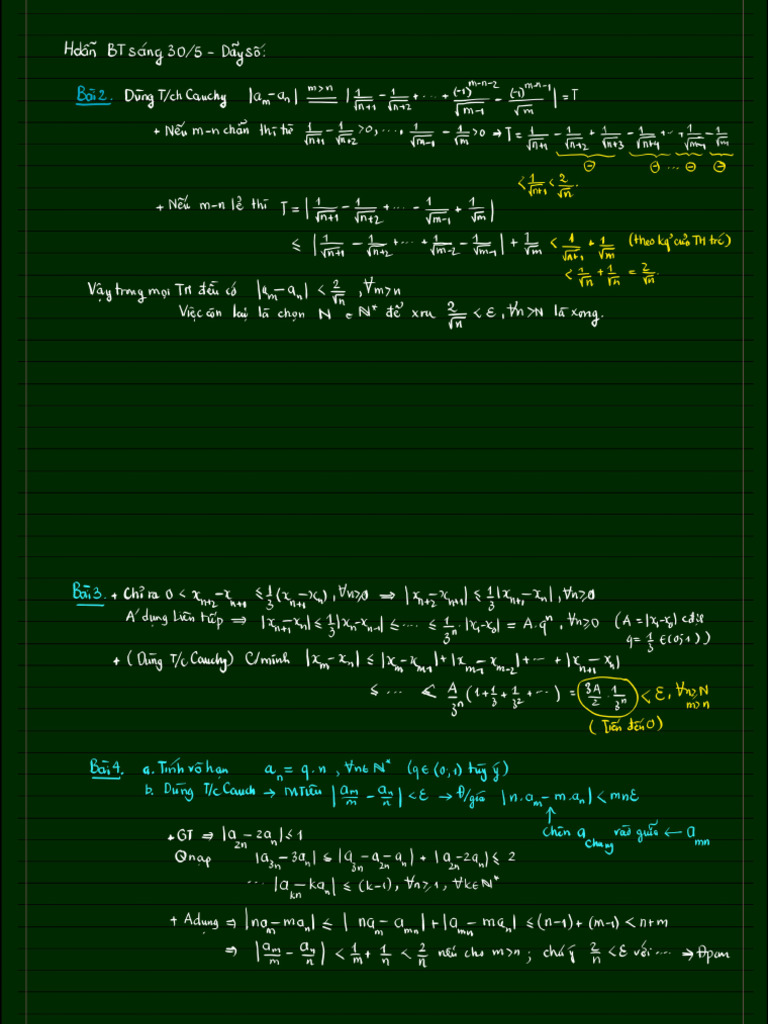 Hdẫn BT sáng 30/5 - Dãy số:
Bài 2. Dùng T/ch Cauchy |a_m - a_n| =^{m>n} |1/√(n+1) - 1/√(n+2) + ... + (-1)^{m-n-2}/√(m-1) - (-1)^{m-n-1}/√m| = T
+ Nếu m-n chẵn thì từ 1/√(n+1) - 1/√(n+2) > 0, ..., 1/√(m-1) - 1/√m > 0 → T = 1/√(n+1) - 1/√(n+2) + 1/√(n+3) - 1/√(n+4) + ... + 1/√(m-1) - 1/√m
⊖ ⊖ ... ⊖ ⊖
< 1/√(n+1) < 2/√n.
+ Nếu m-n lẻ thì T = |1/√(n+1) - 1/√(n+2) + ... - 1/√(m-1) + 1/√m|
≤ |1/√(n+1) - 1/√(n+2) + ... + 1/√(m-2) - 1/√(m-1)| + 1/√m < 1/√(n+1) + 1/√m (theo kq' của TH trc)
< 1/√n + 1/√n = 2/√n.
Vậy trong mọi TH đều có |a_m - a_n| < 2/√n, ∀m>n
Việc còn lại là chọn N ∈ N* để 2/√n < ε, ∀n>N là xong.
Bài 3. + Chỉ ra 0 < x_{n+2} - x_{n+1} ≤ 1/3 (x_{n+1} - x_n), ∀n≥0 ⇒ |x_{n+2} - x_{n+1}| ≤ 1/3 |x_{n+1} - x_n|, ∀n≥0
A' dụng liên tiếp ⇒ |x_{n+1} - x_n| ≤ 1/3 |x_n - x_{n-1}| ≤ ... ≤ 1/3^n . |x_1 - x_0| = A.q^n, ∀n≥0 (A = |x_1 - x_0|
q = 1/3 ∈ (0;1))
+ (Dùng T/c Cauchy) C/minh |x_m - x_n| ≤ |x_m - x_{m-1}| + |x_{m-1} - x_{m-2}| + ... + |x_{n+1} - x_n|
≤ ... < A/3^n (1 + 1/3 + 1/3^2 + ...) = 3A/2 . 1/3^n < ε, ∀n≥N m>n
(Tiến đến 0)
Bài 4. a. Tính vô hạn a_n = q.n, ∀n∈N* (q ∈ (0,1) tùy ý)
b. Dùng T/c Cauch → MTiêu |a_m/m - a_n/n| < ε → Đ/giá |n.a_m - m.a_n| < mnε
chèn a_chung vào giữa ← a_mn
+ GT ⇒ |a_{2n} - 2a_n| ≤ 1
Qnạp |a_{3n} - 3a_n| ≤ |a_{3n} - a_{2n} - a_n| + |a_{2n} - 2a_n| ≤ 2
... |a_{kn} - ka_n| ≤ (k-1), ∀n≥1, ∀k∈N*
+ Adụng ⇒ |na_m - ma_n| ≤ |na_m - a_{mn}| + |a_{mn} - ma_n| ≤ (n-1) + (m-1) < n+m
⇒ |a_m/m - a_n/n| < 1/m + 1/n < 2/n nếu cho m>n; chú ý 2/n < ε với ... → Đpcm